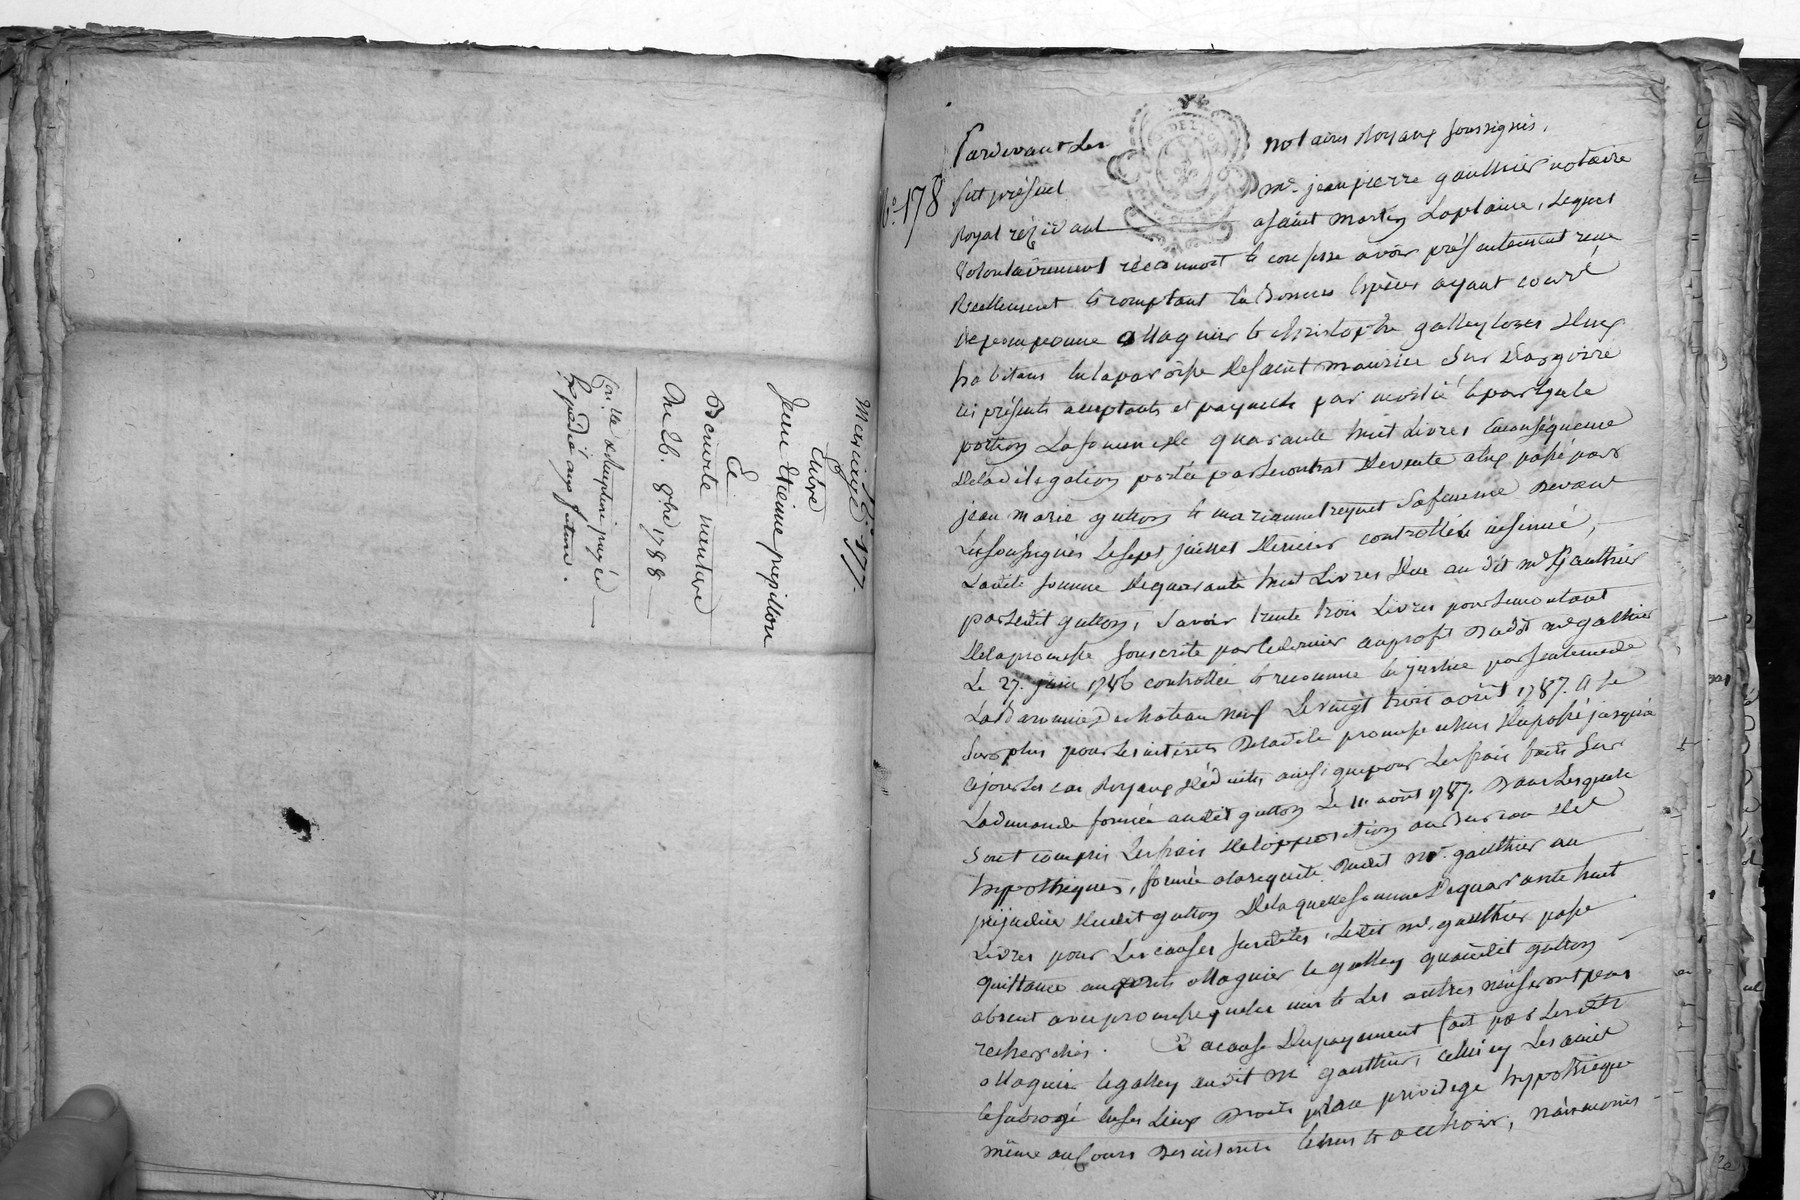 Mariage n.° 177.
Entre
Jean Etienne papillon
Et
Benoite
Du 26. 8bre 1788
Expédié aux future.
N.° 178
Pardevant Les notaires Royaux soussignés,
fut présent m.e jean pierre gaulthier notaire
Royal rézidant a saint martin Laplaine, Lequel
volontairement reconnoit & confesse avoir présentement reçu
Reellement & comptant En Bonnes Espèces ayant cours
de & christophe galley
habitans En la paroisse de saint maurice Sur Dargoire
ici présents acceptants et payants par moitié & par Egale
portion La somme de quarante huit Livres En conséquence
de la délégation portée par Le contrat de vente a Eux passé par
jean marie gutton & Sa femme Devant
Les soussignés Le sept juillet dernier controllé & insinué,
Ladite somme de quarante huit Livres düe au dit m.e Gaulthier
par Ledit gutton, Savoir trente trois Livres pour Le montant
de la promesse souscrite par ce dernier au profit Dudit m.e gaulthier
Le 27. juin 1786 controllée & reconnue En justice par Sentence de
La Baronnie de chateau neuf Le vingt trois août 1787. & Le
Surplus pour Les intérêts De ladite promesse Echus du passé jusqu'à
ce jour Les cas Royaux déduits, ainsi que pour Les frais faits Sur
La demande formée audit gutton Le 11. août 1787. Dans Lesquels
Sont compris Les frais de L'opposition au Bureau des
hypothèques, formée a la requête dudit m.e gaulthier au
préjudice dudit gutton De laquelle somme De quarante huit
Livres pour Les causes Susdites, Ledit m.e gaulthier passe
quittance & galley qu'audit gutton
absent avec promesse que Les uns & Les autres n'en seront plus
recherchés. Et a cause du payement fait par Lesdits
& galley audit m.e gaulthier, celui cy Les a mis
& subrogé En ses Lieux Droits place privilege hypothèque
même au cours Des intérêts Echus & a Echoir, néanmoins